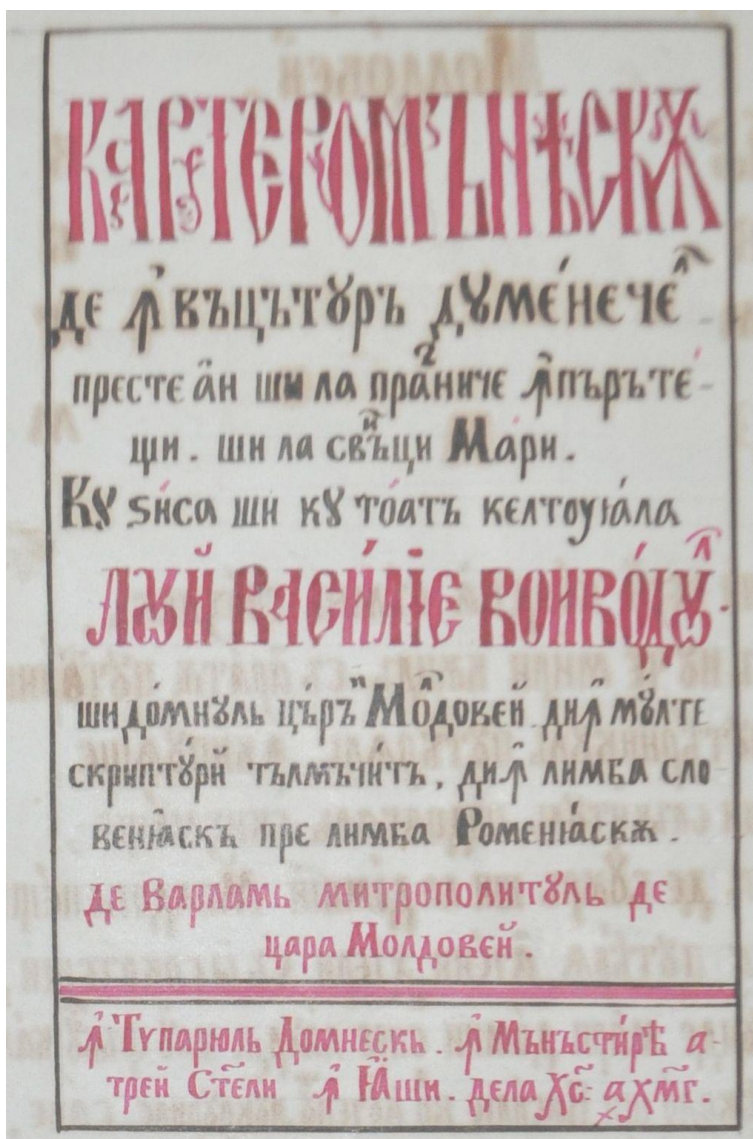 КАРТЕ РОМЪНѢСКѪ
де ꙟвъцътꙋръ дꙋме́нечеⷧ҇
престе а҆н ши ла пра́ⷥниче ꙟпъръте́-
щи. ши ла свⷩ҇ъци Ма́ри.
Кꙋ ѕи́са ши кꙋ то́атъ келтоуꙗ́ла
ЛꙊЙ ВАСИ́ЛІЕ ВОИВО́ДꙊⷧ҇.
ши до́мнꙋль цѣ́ръⷩ Моⷧ҇довей. диꙟ мꙋ́лте
скриптꙋ́рй тълмъчи́тъ. диꙟ лимба сло
венꙗ́скъ пре лимба Роменꙗ́скѫ.
де Варламь митрополитꙋль де
цара Молдовей.
ꙟ Тѵпарюль Домнескь. ꙟ Мънъсти́рѣ а-
трей Ст҃ели ꙟ Ꙗ҆ши. дела Хс҃: ҂а҃хм҃г.